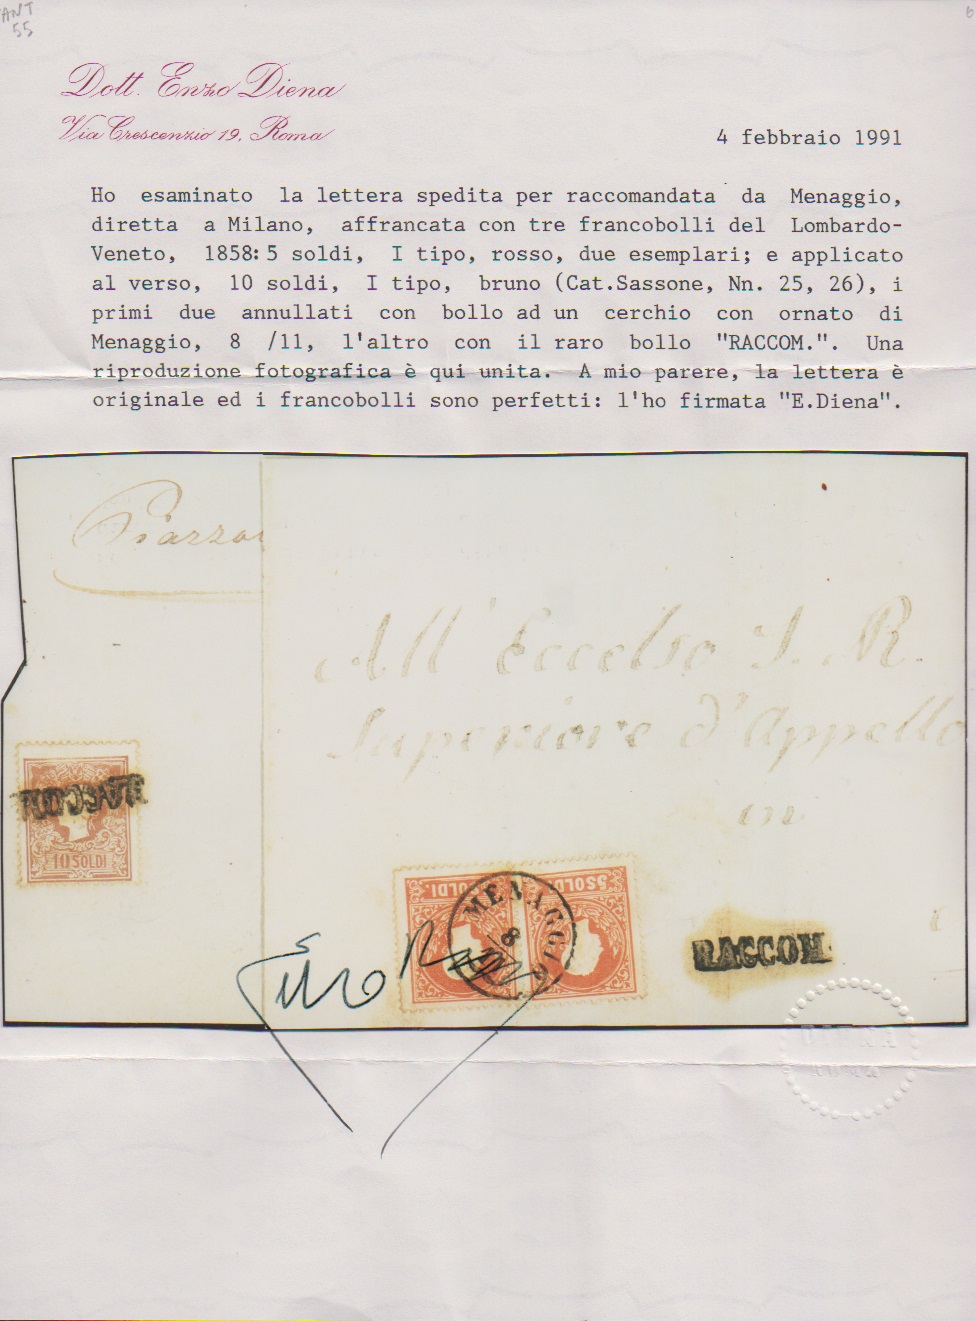 ANT
55
Dott. Enzo Diena
Via Crescenzio 19, Roma
4 febbraio 1991
Ho esaminato la lettera spedita per raccomandata da Menaggio,
diretta a Milano, affrancata con tre francobolli del Lombardo-
Veneto, 1858: 5 soldi, I tipo, rosso, due esemplari; e applicato
al verso, 10 soldi, I tipo, bruno (Cat.Sassone, Nn. 25, 26), i
primi due annullati con bollo ad un cerchio con ornato di
Menaggio, 8 /11, l'altro con il raro bollo "RACCOM.". Una
riproduzione fotografica è qui unita. A mio parere, la lettera è
originale ed i francobolli sono perfetti: l'ho firmata "E.Diena".
All' Eccelso I. R.
Superiore d'Appello
in
10 SOLDI
5 SOLDI
MENAGGIO
8
RACCOM.